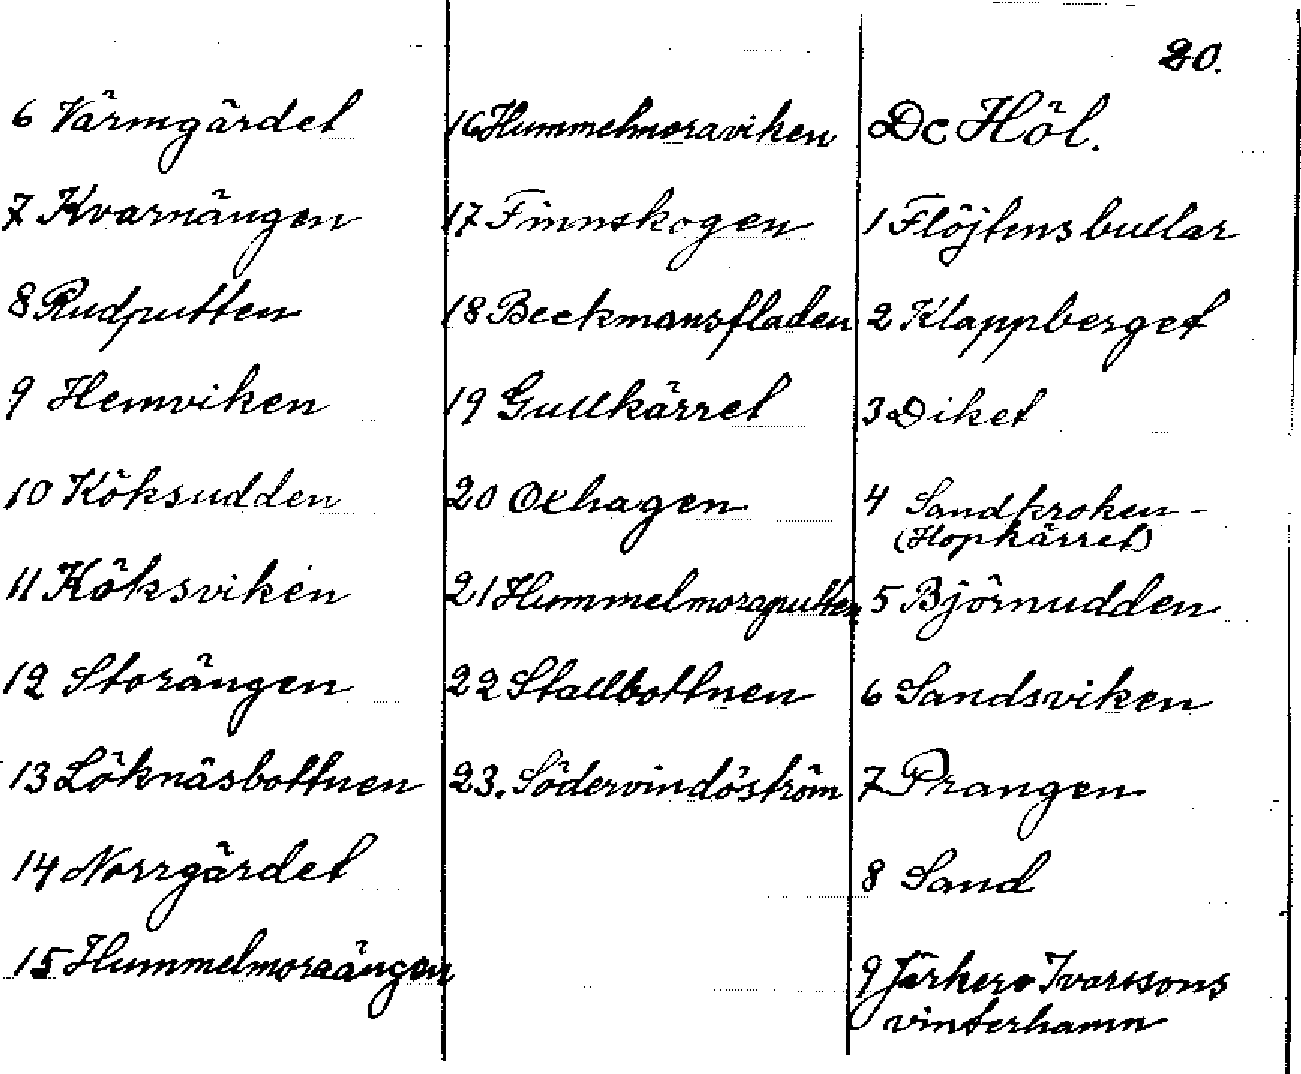 20.
6 Värmgärdet
7 Kvarnängen
8 Rudputten
9 Hemviken
10 Köksudden
11 Köksviken
12 Storängen
13 Löknäsbottnen
14 Norrgärdet
15 Hummelmoraängen
16 Hummelmoraviken
17 Finnskogen
18 Beckmansfladen
19 Gullkärret
20 Oxhagen
21 Hummelmoraputten
22 Stallbottnen
23. Södervindöström
Dc Höl.
1 Flöjtens bullar
2 Klappberget
3 Diket
4 Sandkroken -
(Hopkärret)
5 Björnudden
6 Sandsviken
7 Prangen
8 Sand
9 Ivarssons
vinterhamn